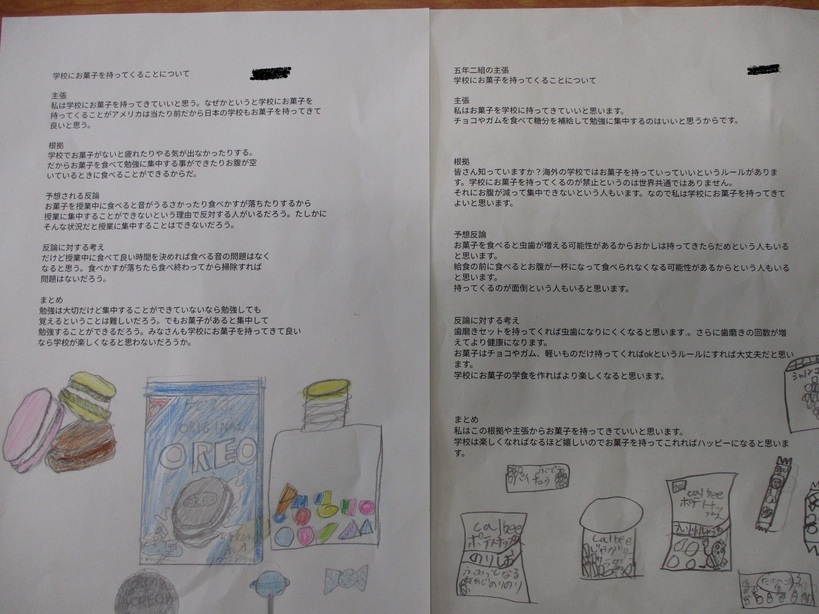 学校にお菓子を持ってくることについて
主張
私は学校にお菓子を持ってきていいと思う。なぜかというと学校にお菓子を
持ってくることがアメリカは当たり前だから日本の学校もお菓子を持ってきて
良いと思う。
根拠
学校でお菓子がないと疲れたりやる気が出なかったりする。
だからお菓子を食べて勉強に集中する事ができたりお腹が空
いているときに食べることができるからだ。
予想される反論
お菓子を授業中に食べると音がうるさかったり食べかすが落ちたりするから
授業に集中することができないという理由で反対する人がいるだろう。たしかに
そんな状況だと授業に集中することはできないだろう。
反論に対する考え
だけど授業中に食べて良い時間を決めれば食べる音の問題はなく
なると思う。食べかすが落ちたら食べ終わってから掃除すれば
問題はないだろう。
まとめ
勉強は大切だけど集中することができていないなら勉強しても
覚えるということは難しいだろう。でもお菓子があると集中して
勉強することができるだろう。みなさんも学校にお菓子を持ってきて良い
なら学校が楽しくなると思わないだろうか。
ORIGINAL
OREO
OREO
OREO
五年二組の主張
学校にお菓子を持ってくることについて
主張
私はお菓子を学校に持ってきていいと思います。
チョコやガムを食べて糖分を補給して勉強に集中するのはいいと思うからです。
根拠
皆さん知っていますか？海外の学校ではお菓子を持っていっていいというルールがありま
す。学校にお菓子を持ってくるのが禁止というのは世界共通ではありません。
それにお腹が減って集中できないという人もいます。なので私は学校にお菓子を持ってきて
よいと思います。
予想反論
お菓子を食べると虫歯が増える可能性があるからおかしは持ってきたらだめという人もいる
と思います。
給食の前に食べるとお腹が一杯になって食べられなくなる可能性があるからという人もいる
と思います。
持ってくるのが面倒という人もいると思います。
反論に対する考え
歯磨きセットを持ってくれば虫歯になりにくくなると思います.。さらに歯磨きの回数が増
えてより健康になります。
お菓子はチョコやガム、軽いものだけ持ってくればokというルールにすれば大丈夫だと思い
ます。
学校にお菓子の学食を作ればより楽しくなると思います。
まとめ
私はこの根拠や主張からお菓子を持ってきていいと思います。
学校は楽しくなればなるほど嬉しいのでお菓子を持ってこれればハッピーになると思いま
す。
calbee
ポテトチップス
のりしお
calbee
じゃがりこ
サラダ
calbee
ポテトチップス